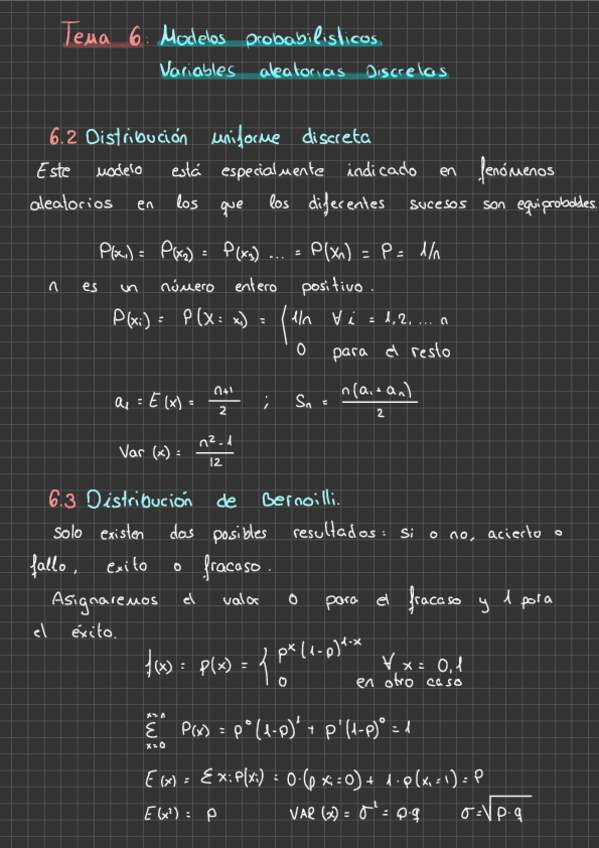 Tema 6: Modelos probabilisticos.
Variables aleatorias Discretas
6.2 Distribución uniforme discreta
Este modelo está especialmente indicado en fenómenos
aleatorios en los que los diferentes sucesos son equiprobables.
P(x₁) = P(x₂) = P(x₃) ... = P(xₙ) = P = 1/n
n es un número entero positivo.
P(xᵢ) = P(X = xᵢ) = { 1/n ∀ i = 1,2, ... n
0 para el resto
a₁ = E(x) = (n+1)/2 ; Sₙ = n(a₁ + aₙ)/2
Var (x) = (n² - 1)/12
6.3 Distribución de Bernoilli.
Solo existen dos posibles resultados: si o no, acierto o
fallo, exito o fracaso.
Asignaremos el valor 0 para el fracaso y 1 para
el éxito.
f(x) = p(x) = { pˣ (1-p)¹⁻ˣ ∀ x = 0,1
0 en otro caso
Σ P(x) = p⁰ (1-p)¹ + p¹ (1-p)⁰ = 1
x=0
E(x) = Σ xᵢ p(xᵢ) = 0·(p xᵢ=0) + 1·p(xᵢ=1) = p
E(x²) = p VAR (x) = σ² = p·q σ = √p·q